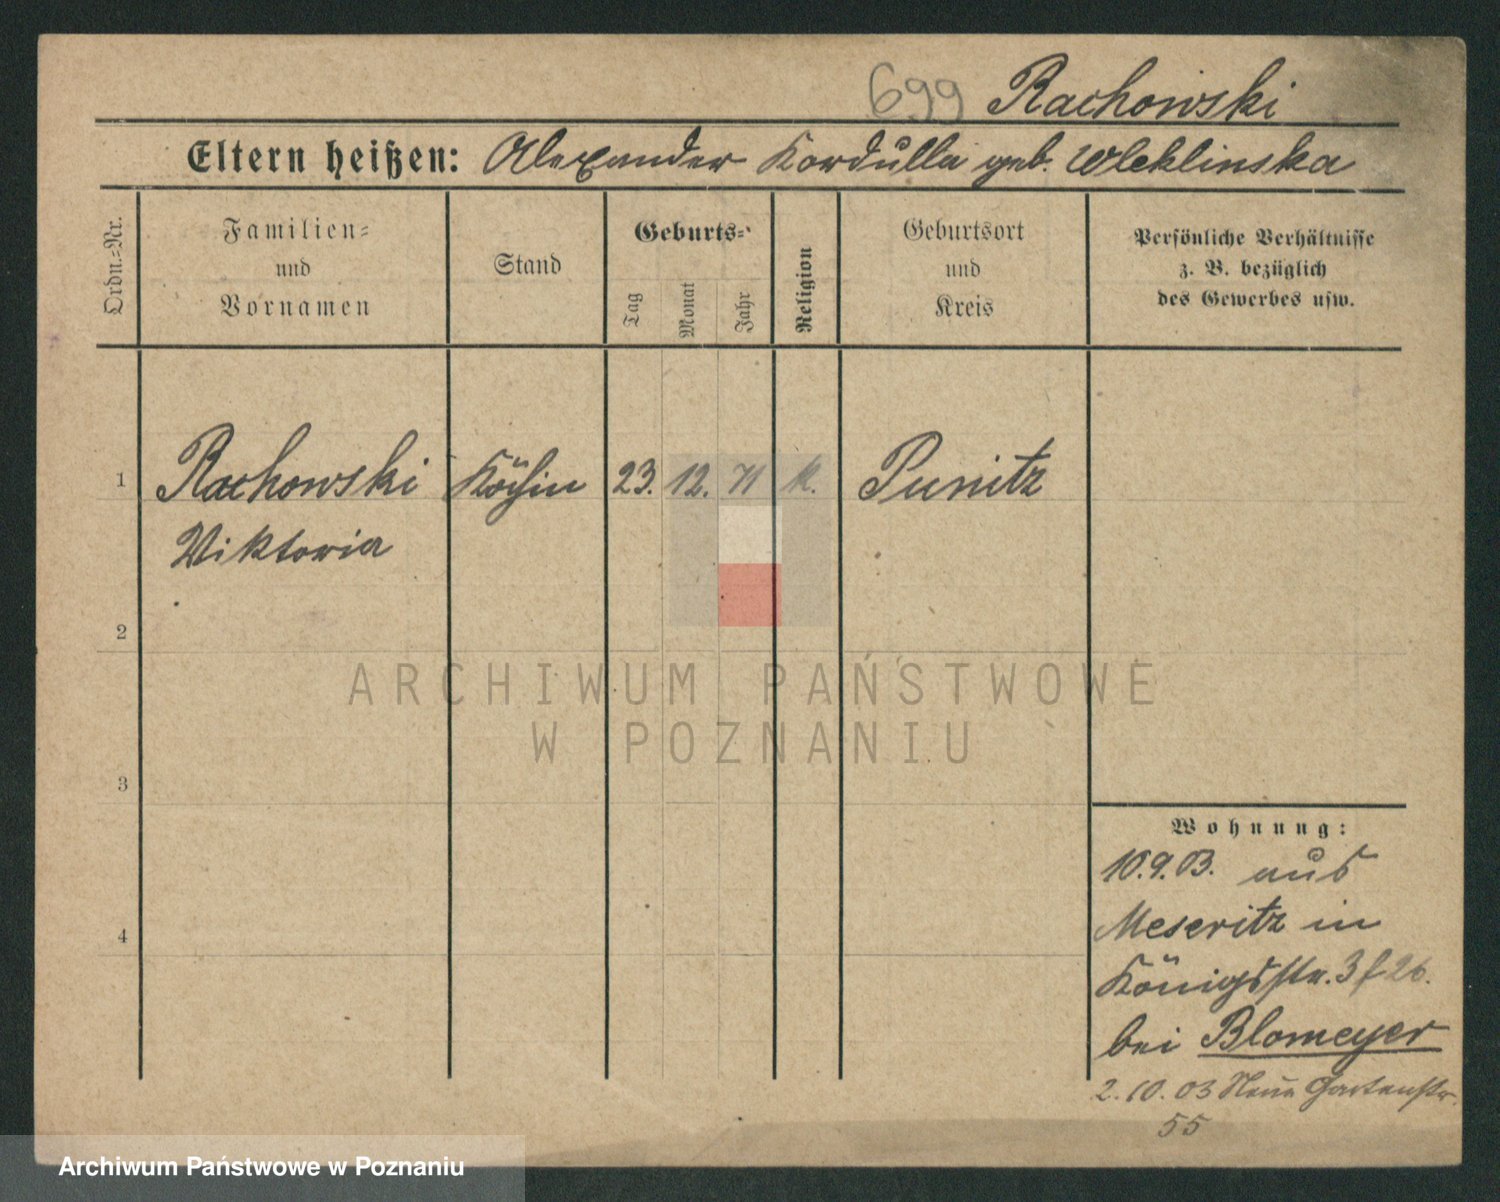 699 Rachowski
Eltern heißen: Alexander Kordulla geb. Wleklinska
Ordn.-Nr.
Familien-
und
Vornamen
Stand
Geburts-
Tag
Monat
Jahr
Religion
Geburtsort
und
Kreis
Persönliche Verhältnisse
z. B. bezüglich
des Gewerbes usw.
1 Rachowski Köchin 23. 12. 71 k. Punitz
Viktoria
2
3
4
Wohnung:
10.9.03. aus
Meseritz in
Königsstr. 3
bei Blomeyer
2.10.03 Neue Gartenstr.
55
ARCHIWUM PAŃSTWOWE
W POZNANIU
Archiwum Państwowe w Poznaniu